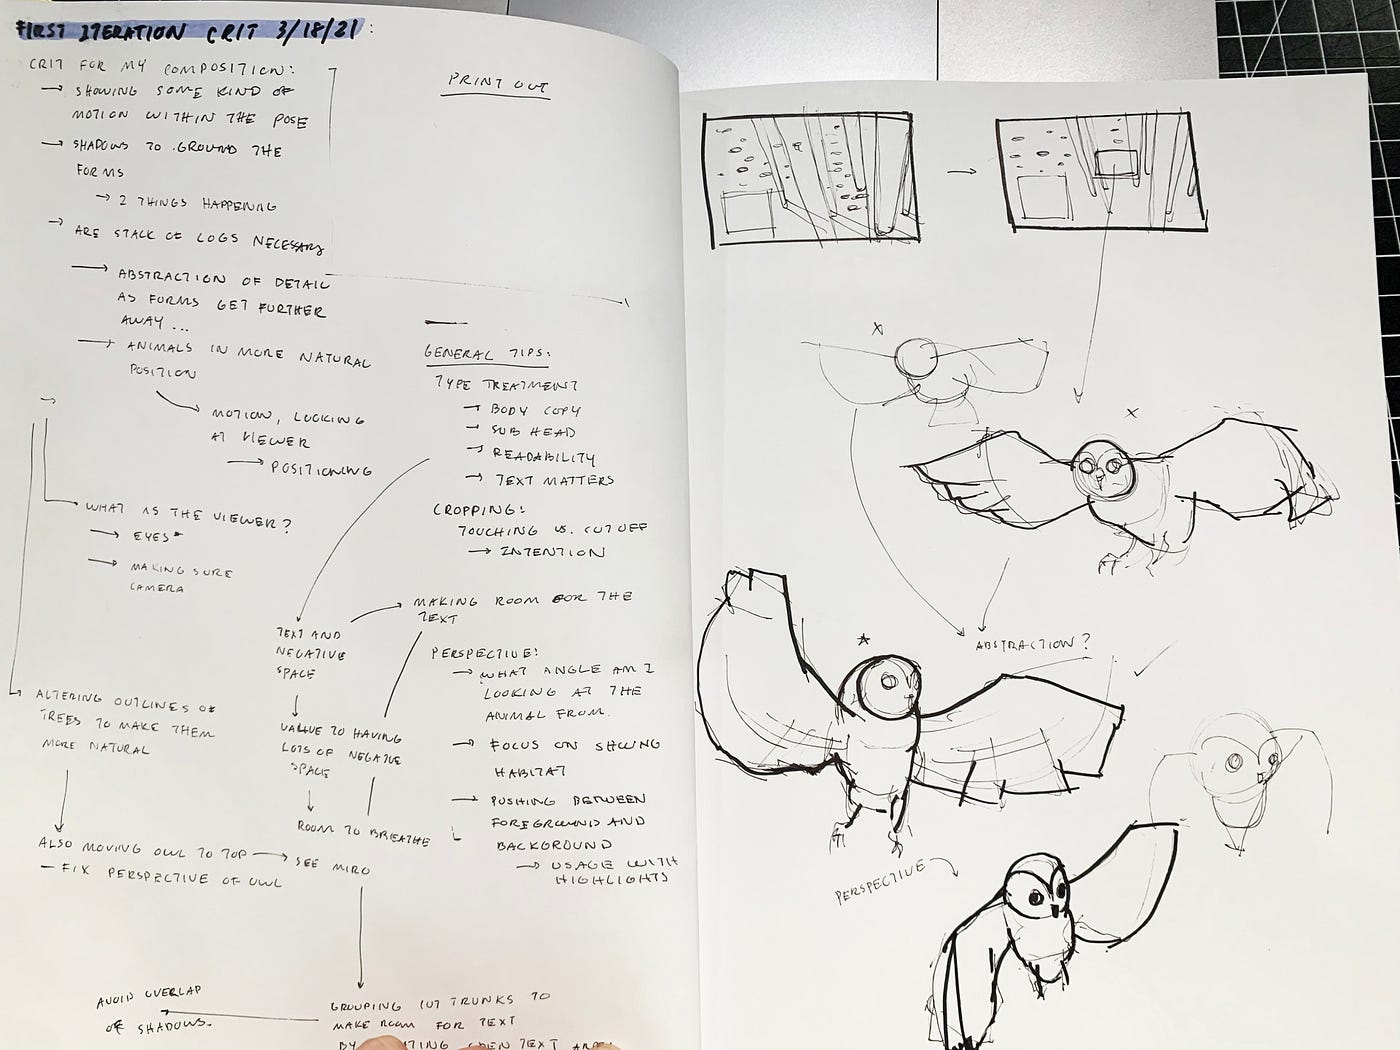 FIRST ITERATION CRIT 3/18/21:
CRIT FOR MY COMPOSITION:
→ SHOWING SOME KIND OF
MOTION WITHIN THE POSE
→ SHADOWS TO GROUND THE
FORMS
→ 2 THINGS HAPPENING
→ ARE STACK OF LOGS NECESSARY
→ ABSTRACTION OF DETAIL
AS FORMS GET FURTHER
AWAY...
→ ANIMALS IN MORE NATURAL
POSITION
MOTION, LOOKING
AT VIEWER
→ POSITIONING
WHAT IS THE VIEWER?
→ EYES
→ MAKING SURE
CAMERA
ALTERING OUTLINES OF
TREES TO MAKE THEM
MORE NATURAL
ALSO MOVING OWL TO TOP → SEE MIRO
- FIX PERSPECTIVE OF OWL
PRINT OUT
GENERAL TIPS:
TYPE TREATMENT
→ BODY COPY
→ SUB HEAD
→ READABILITY
→ TEXT MATTERS
CROPPING:
TOUCHING VS. CUT OFF
→ INTENTION
TEXT AND
NEGATIVE
SPACE
VALUE TO HAVING
LOTS OF NEGATIVE
SPACE
ROOM TO BREATHE
MAKING ROOM FOR THE
TEXT
PERSPECTIVE:
→ WHAT ANGLE AM I
LOOKING AT THE
ANIMAL FROM.
→ FOCUS ON SHOWING
HABITAT
→ PUSHING BETWEEN
FOREGROUND AND
BACKGROUND
→ USAGE WITH
HIGHLIGHTS
GROUPING TRUNKS TO
MAKE ROOM FOR TEXT
BY TEXT
AVOID OVERLAP
OF SHADOWS.
ABSTRACTION?
PERSPECTIVE